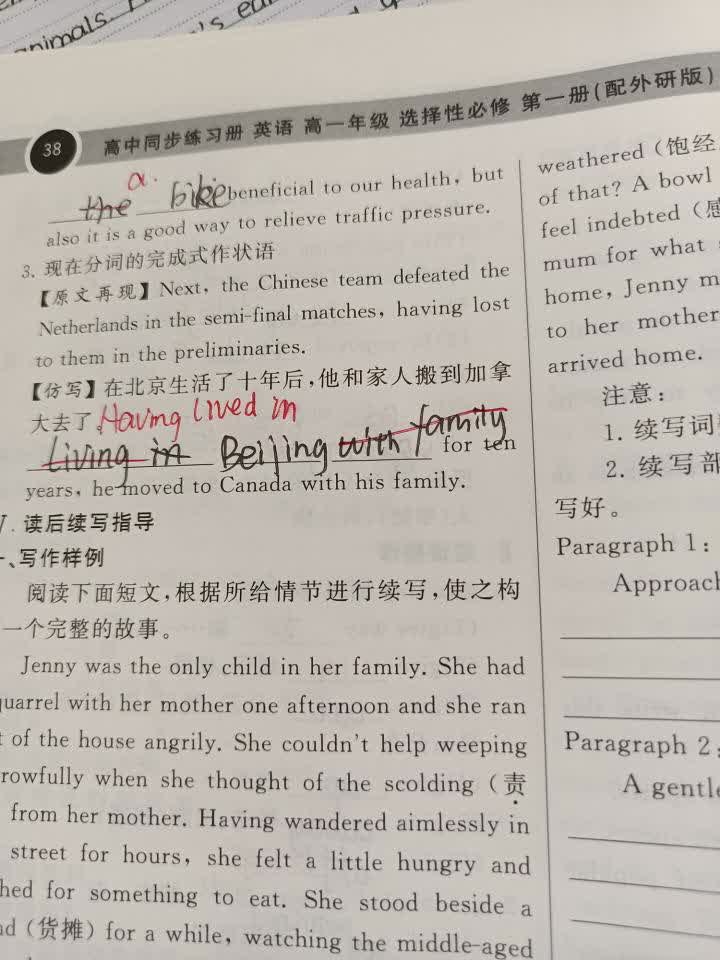 nimals.
's ea
38 高中同步练习册 英语 高一年级 选择性必修 第一册(配外研版)
a.
the bike beneficial to our health, but
also it is a good way to relieve traffic pressure.
3. 现在分词的完成式作状语
【原文再现】Next, the Chinese team defeated the
Netherlands in the semi-final matches, having lost
to them in the preliminaries.
【仿写】在北京生活了十年后,他和家人搬到加拿
大去了.
Having lived in
Living in Beijing with family for ten
years, he moved to Canada with his family.
V. 读后续写指导
一、写作样例
阅读下面短文,根据所给情节进行续写,使之构
一个完整的故事。
Jenny was the only child in her family. She had
quarrel with her mother one afternoon and she ran
t of the house angrily. She couldn't help weeping
rowfully when she thought of the scolding (责
from her mother. Having wandered aimlessly in
street for hours, she felt a little hungry and
hed for something to eat. She stood beside a
nd (货摊) for a while, watching the middle-aged
weathered (饱经
of that? A bowl
feel indebted (感
mum for what
home, Jenny m
to her mother
arrived home.
注意:
1. 续写词
2. 续写部
写好。
Paragraph 1:
Approach
Paragraph 2
A gentle